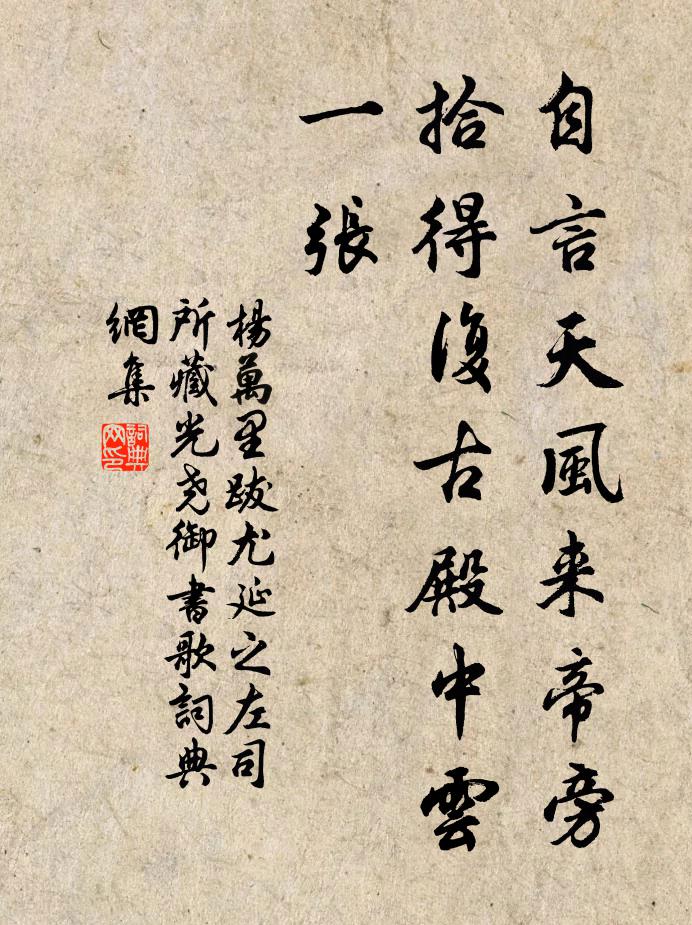 自言天風来帝旁
拾得復古殿中雲
一張
楊萬里跋尤延之左司
所藏光尧御書歌詞典
網集
詞典
网印